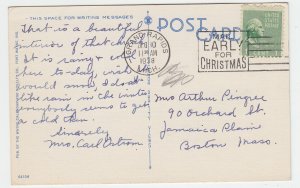 THIS SPACE FOR WRITING MESSAGES
POST CARD
That is a beautiful
interior of that church
It is rainy & cold
here to-day, wish it
would snow, I don't
like rain in the winter
everybody seems to get
a cold then.
Sincerely
Mrs. Carl Ostrom
GRAND RAPIDS
11 AM
1938
MICH.
EARLY
FOR
CHRISTMAS
Mrs Arthur Pingree
90 Orchard St.
Jamaica Plain
Boston Mass.